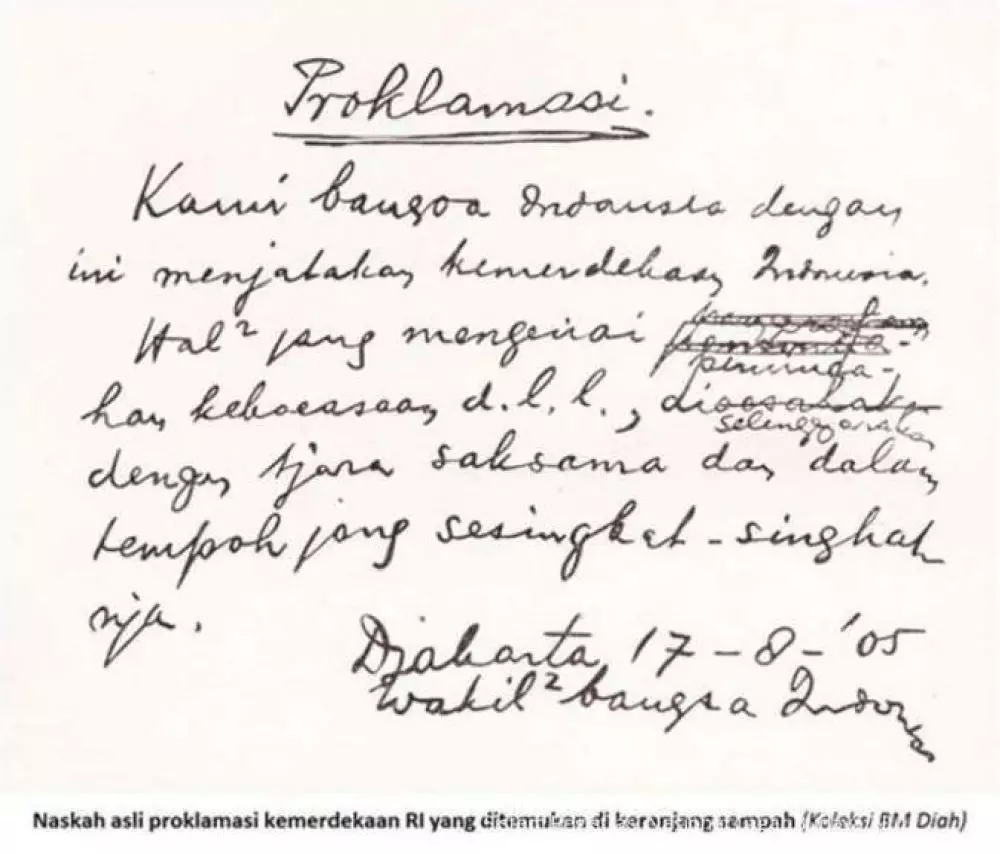 Proklamasi.
Kami bangsa Indonesia dengan
ini menjatakan kemerdekaan Indonesia.
Hal² jang mengenai
peminda-
han keboeasaan d.l.l., dioesahak
selenggarakan
dengan tjara saksama dan dalam
tempoh jang sesingkat-singkat
nja.
Djakarta 17-8-'05
Wakil² bangsa Indonesia
Naskah asli proklamasi kemerdekaan RI yang ditemukan di keranjang sampah (Koleksi BM Diah)